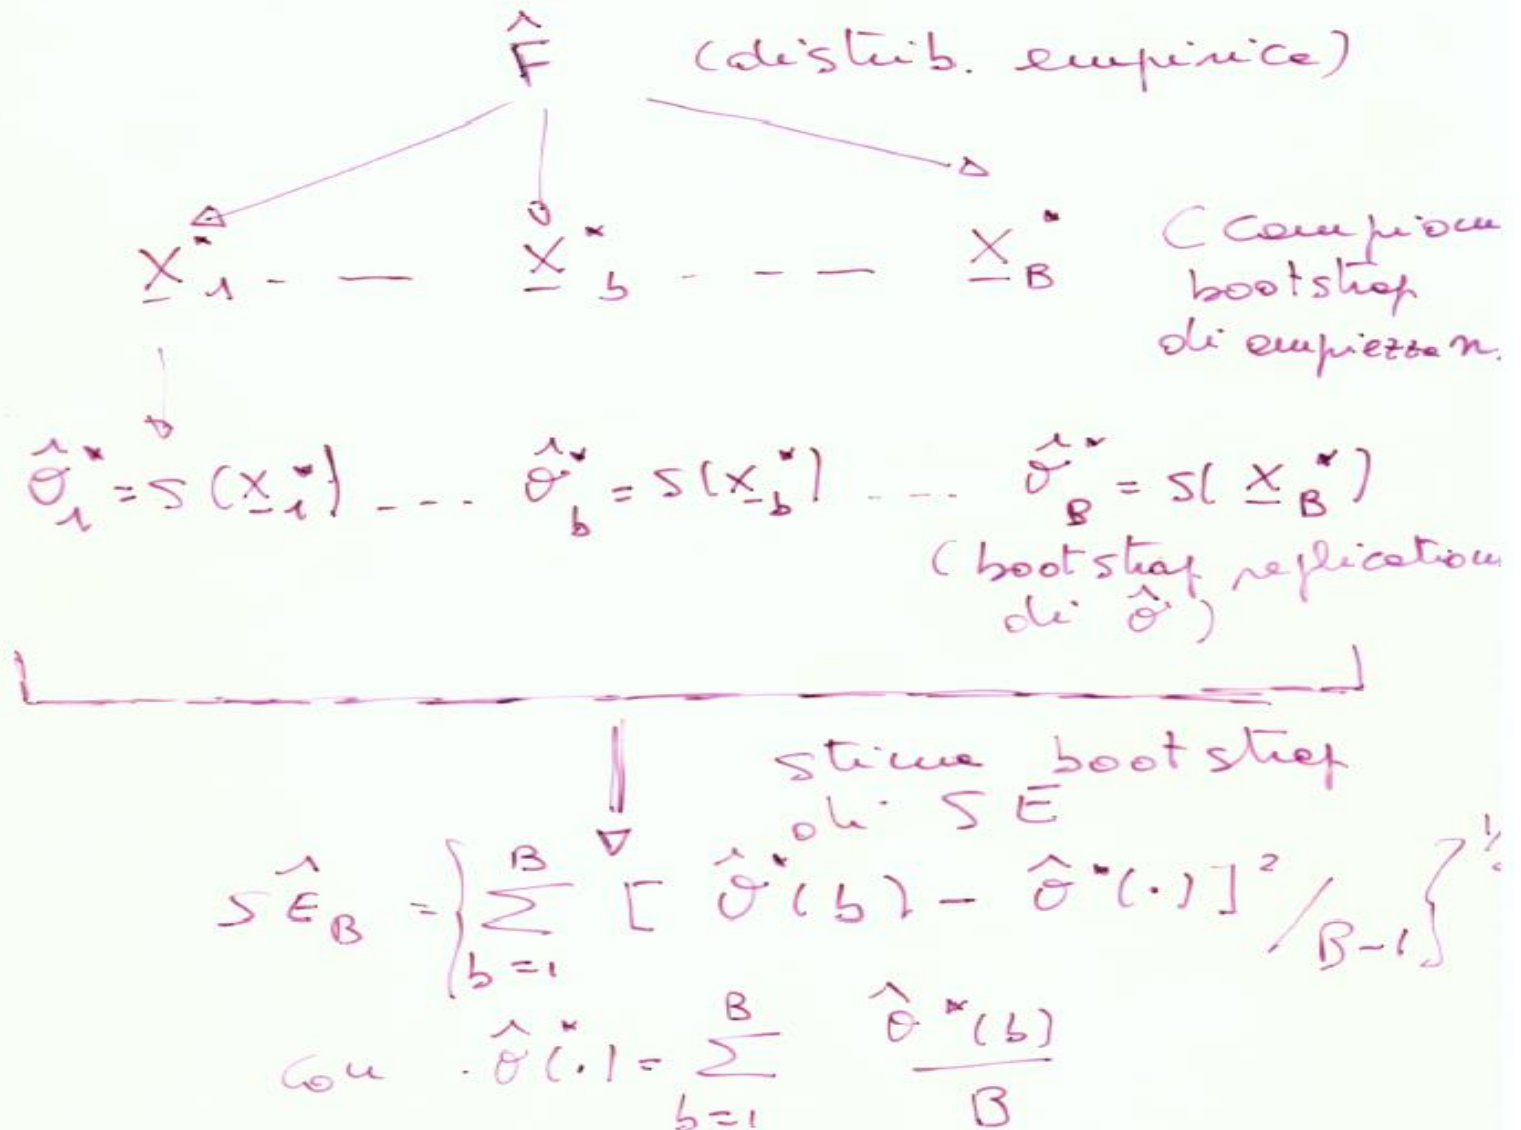 F̂ (distrib. empirica)
X*_1 - — X*_b - - - — X*_B (Campioni
bootstrap
di ampiezza n.
θ̂*_1 = S(X*_1) - - - θ̂*_b = S(X*_b) - - - θ̂*_B = S(X*_B)
(bootstrap replication
di θ̂)
stima bootstrap
di SE
SÊ_B = {∑_{b=1}^{B} [θ̂*(b) - θ̂*(.)]² / B-1}^{1/2}
con θ̂*(.) = ∑_{b=1}^{B} θ̂*(b) / B